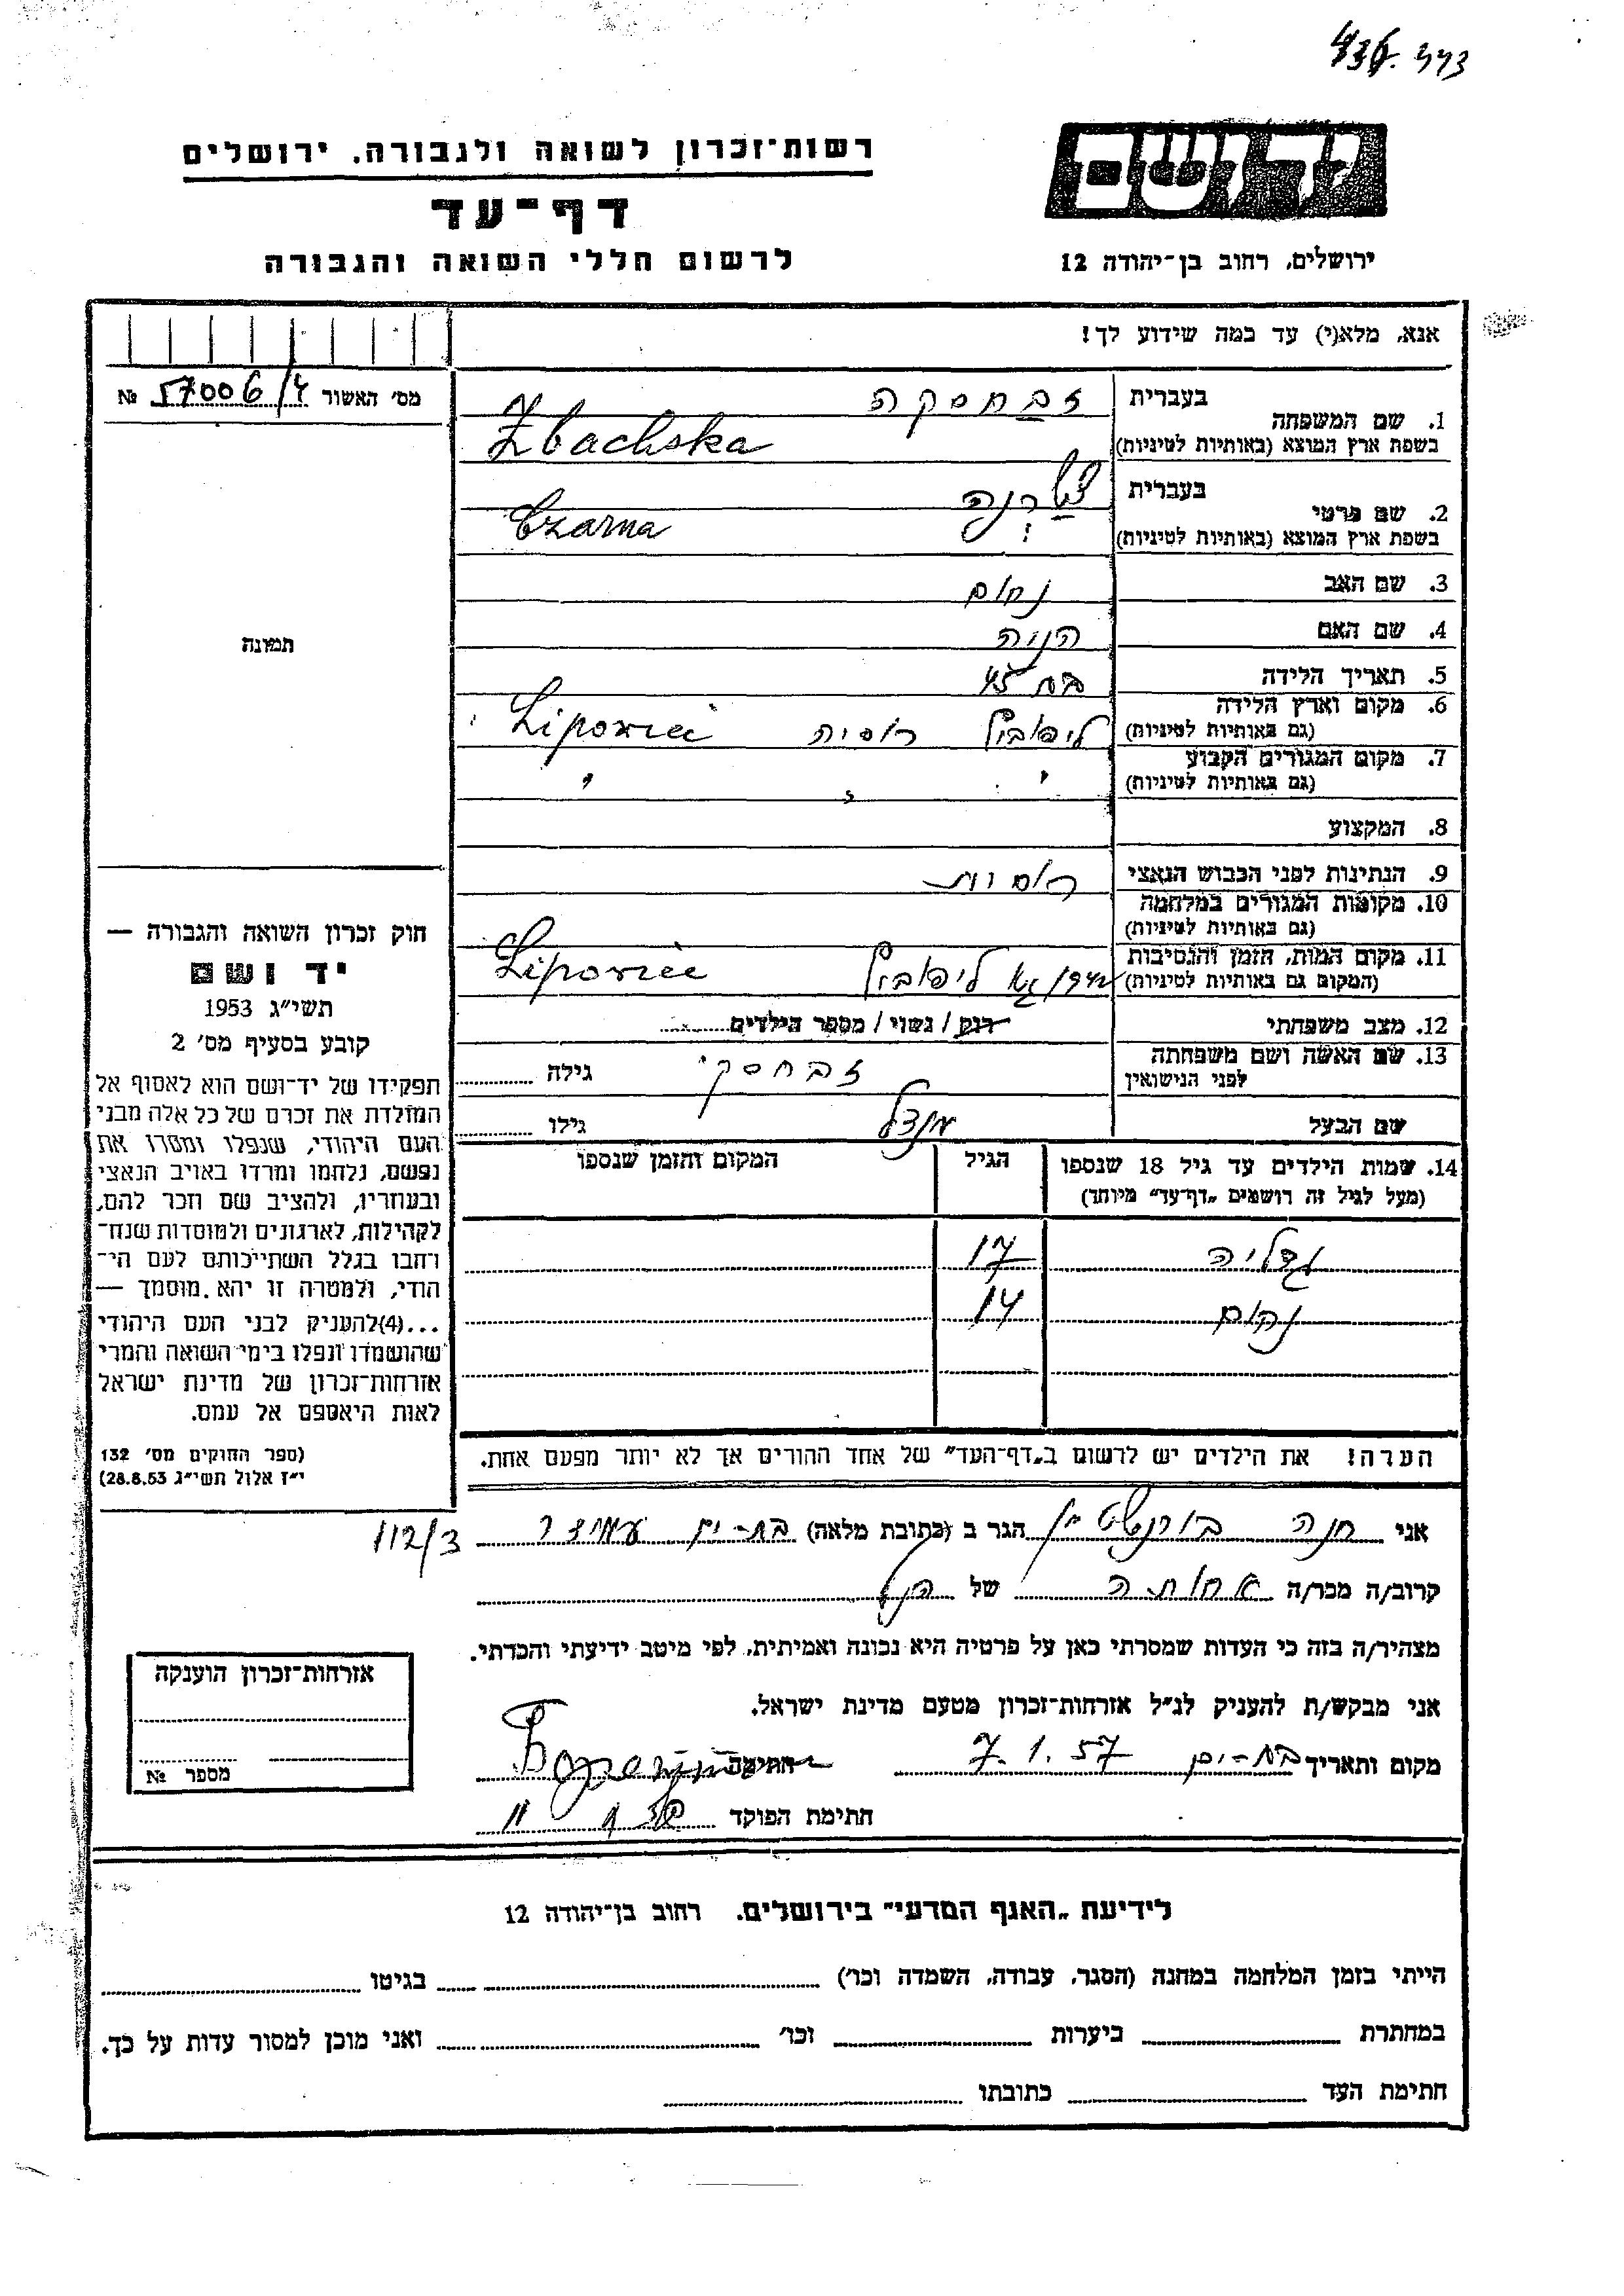 436. 443
יד ושם
רשות־זכרון לשואה ולגבורה, ירושלים
דף־עד
ירושלים, רחוב בן־יהודה 12
לרשום חללי השואה והגבורה
אנא, מלא(י) עד כמה שידוע לך!
מס' האשור 57006/4 №
בעברית זבחסקה
1. שם המשפחה
בשפת ארץ המוצא (באותיות לטיניות) Zbachska
בעברית
2. שם פרטי
בשפת ארץ המוצא (באותיות לטיניות) Czarna
3. שם האב נחום
4. שם האם הניה
5. תאריך הלידה בת 45
6. מקום וארץ הלידה
(גם באותיות לטיניות) רוסיה
7. מקום המגורים הקבוע
(גם באותיות לטיניות) " " "
8. המקצוע
9. הנתינות לפני הכבוש הנאצי רוסית
10. מקומות המגורים במלחמה
(גם באותיות לטיניות)
11. מקום המות, הזמן והנסיבות
(המקום גם באותיות לטיניות) 1942
12. מצב משפחתי רווק / נשוי / מספר הילדים
13. שם האשה ושם משפחתה
לפני הנישואין זבחסקי גילה
שם הבעל מנדל גילו
14. שמות הילדים עד גיל 18 שנספו הגיל המקום והזמן שנספו
(מעל לגיל זה רושמים „דף־עד" מיוחד)
גדליה 17
נחום 14
הערה! את הילדים יש לרשום ב„דף־העד" של אחד ההורים אך לא יותר מפעם אחת.
תמונה
חוק זכרון השואה והגבורה —
יד ושם
תשי"ג 1953
קובע בסעיף מס' 2
תפקידו של יד־ושם הוא לאסוף אל
המולדת את זכרם של כל אלה מבני
העם היהודי, שנפלו ומסרו את
נפשם, נלחמו ומרדו באויב הנאצי
ובעוזריו, ולהציב שם וזכר להם,
לקהילות, לארגונים ולמוסדות שנח־
רבו בגלל השתייכותם לעם הי־
הודי, ולמטרה זו יהא מוסמך —
...(4) להעניק לבני העם היהודי
שהושמדו ונפלו בימי השואה והמרי
אזרחות־זכרון של מדינת ישראל
לאות היאספם אל עמם.
(ספר החוקים מס' 132
י"ז אלול תשי"ג 28.8.53)
אני חנה בורנשטיין הגר ב (כתובת מלאה) בת-ים עמידר 112/3
קרוב/ה מכר/ה אחותה של הנ"ל
מצהיר/ה בזה כי העדות שמסרתי כאן על פרטיה היא נכונה ואמיתית, לפי מיטב ידיעתי והכרתי.
אני מבקש/ת להעניק לנ"ל אזרחות־זכרון מטעם מדינת ישראל.
מקום ותאריך בת-ים 7.1.57 חתימה
חתימת הפוקד
אזרחות־זכרון הוענקה
מספר №
לידיעת „האגף המדעי" בירושלים, רחוב בן־יהודה 12
הייתי בזמן המלחמה במחנה (הסגר, עבודה, השמדה וכו') בגיטו
במחתרת ביערות וכו' ואני מוכן למסור עדות על כך.
חתימת העד כתובתו